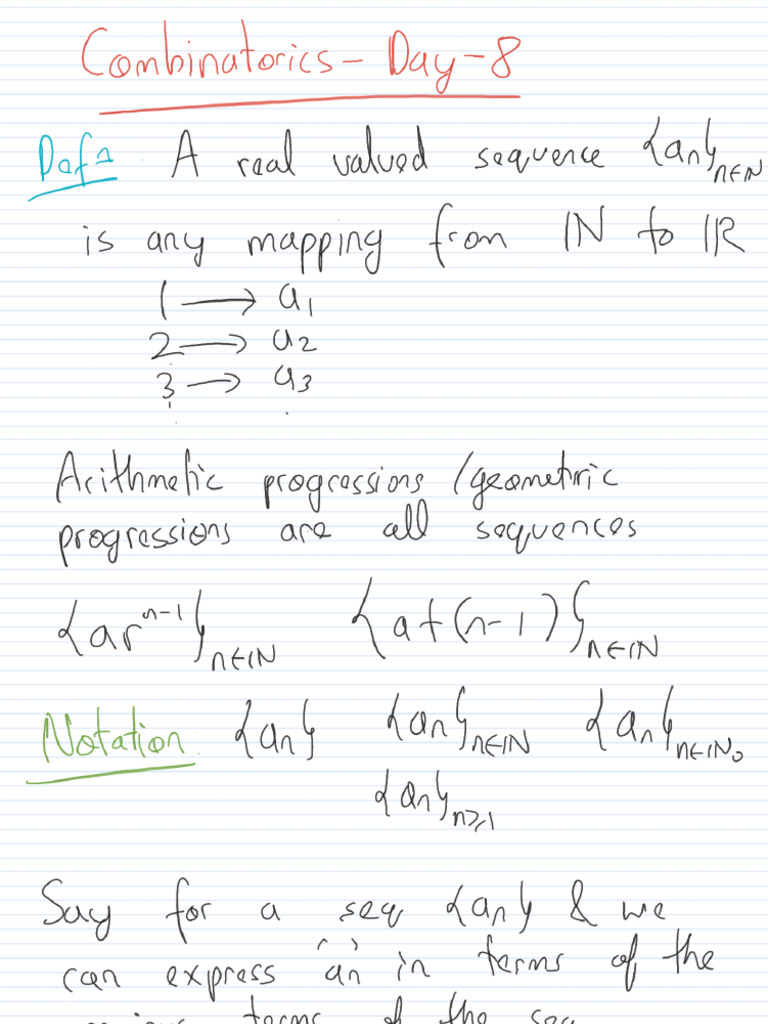 Combinatorics - Day - 8
Defn: A real valued sequence {an}n∈IN
is any mapping from IN to IR
1 → a1
2 → a2
3 → a3
Arithmetic progressions / geometric
progressions are all sequences
{ar^n-1}n∈IN {a+(n-1)}n∈IN
Notation: {an} {an}n∈IN {an}n∈IN0
{an}n≥1
Say for a seq {an} & we
can express 'an' in terms of the
terms of the seq